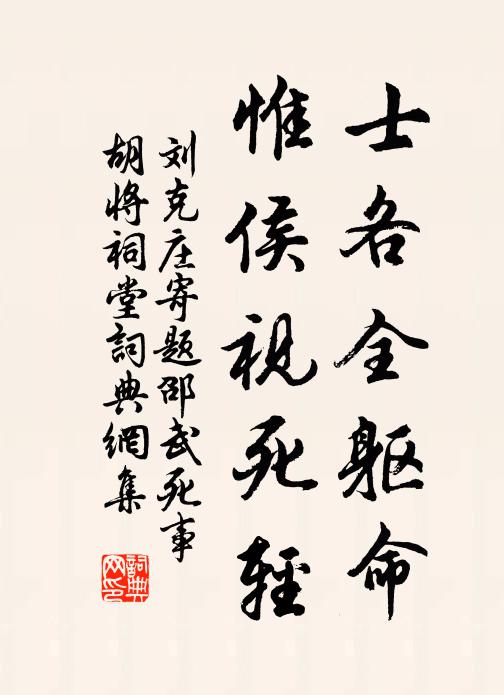 士各全躯命
惟侯视死轻
刘克庄寄题邵武死事
胡将祠堂詞典網集
詞典
网印